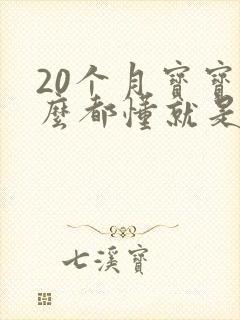 20个月寶寶
麼都懂就是
七溪寶